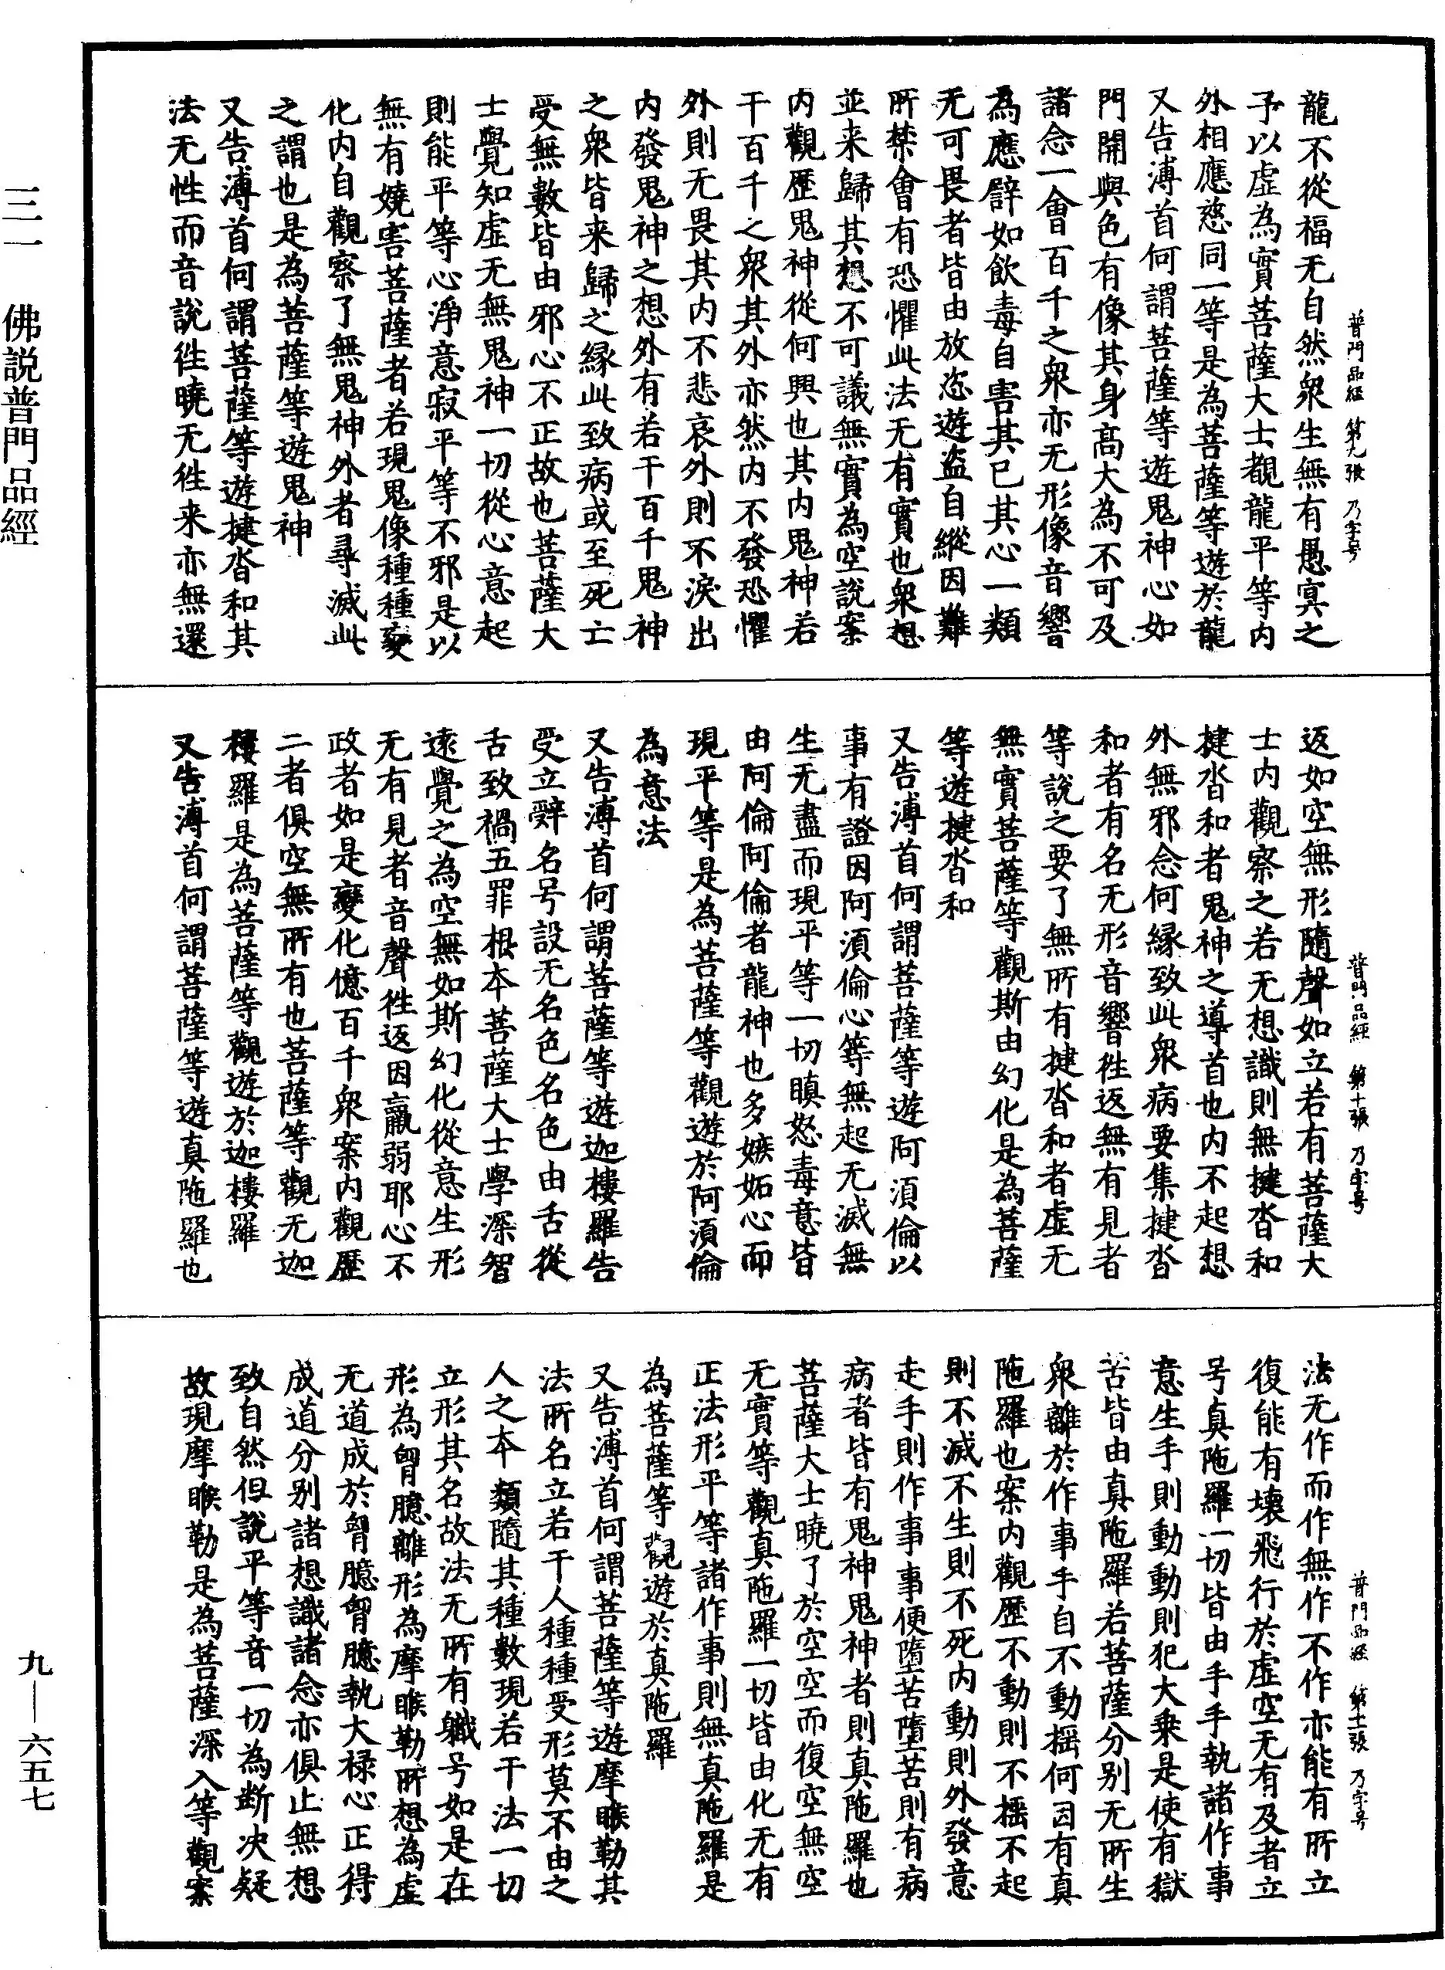 普門品經　第九張　乃字号
龍不從福无自然衆生無有愚冥之
予以虛為實菩薩大士觀龍平等内
外相應慈同一等是為菩薩等遊於龍
又告溥首何謂菩薩等遊鬼神心如
門開與色有像其身高大為不可及
諸念一會百千之衆亦无形像音響
為應辟如飲毒自害其已其心一類
无可畏者皆由放恣遊盗自縱因難
所禁會有恐懼此法无有實也衆想
並来歸其想不可議無實為空説案
内觀歷鬼神從何興也其内鬼神若
干百千之衆其外亦然内不發恐懼
外則无畏其内不悲哀外則不淚出
内發鬼神之想外有若干百千鬼神
之衆皆来歸之縁此致病或至死亡
受無數皆由邪心不正故也菩薩大
士覺知虛无無鬼神一切從心意起
則能平等心淨意寂平等不邪是以
無有嬈害菩薩者若現鬼像種種變
化内自觀察了無鬼神外者尋滅此
之謂也是為菩薩等遊鬼神
又告溥首何謂菩薩等遊揵沓和其
法无性而音説徃曉无徃来亦無還
普門品經　第十張　乃字号
返如空無形隨聲如立若有菩薩大
士内觀察之若无想識則無揵沓和
揵沓和者鬼神之導首也内不起想
外無邪念何縁致此衆病要集揵沓
和者有名无形音響徃返無有見者
等説之要了無所有揵沓和者虛无
無實菩薩等觀斯由幻化是為菩薩
等遊揵沓和
又告溥首何謂菩薩等遊阿須倫以
事有證因阿須倫心等無起无滅無
生无盡而現平等一切瞋怒毒意皆
由阿倫阿倫者龍神也多嫉妬心而
現平等是為菩薩等觀遊於阿須倫
為意法
又告溥首何謂菩薩等遊迦樓羅告
受立辤名号設无名色名色由舌從
舌致禍五罪根本菩薩大士學深智
遠覺之為空無如斯幻化從意生形
无有見者音聲徃返因羸弱耶心不
政者如是變化億百千衆案内觀歷
二者俱空無所有也菩薩等觀无迦
樓羅是為菩薩等觀遊於迦樓羅
又告溥首何謂菩薩等遊真陁羅也
普門品經　第十一張　乃字号
法无作而作無作不作亦能有所立
復能有壞飛行於虛空无有及者立
号真陁羅一切皆由手手執諸作事
意生手則動動則犯大乗是使有獄
苦皆由真陁羅若菩薩分别无所生
衆離於作事手自不動摇何因有真
陁羅也案内觀歷不動則不摇不起
則不滅不生則不死内動則外發意
走手則作事事便墮苦墮苦則有病
病者皆有鬼神鬼神者則真陁羅也
菩薩大士曉了於空空而復空無空
无實等觀真陁羅一切皆由化无有
正法形平等諸作事則無真陁羅是
為菩薩等觀遊於真陁羅
又告溥首何謂菩薩等遊摩睺勒其
法所名立若干人種種受形莫不由之
人之本類隨其種數現若干法一切
立形其名故法无所有軄号如是在
形為胷臆離形為摩睺勒所想為虛
无道成於胷臆胷臆執大禄心正得
成道分别諸想識諸念亦俱止無想
致自然但説平等音一切為断决疑
故現摩睺勒是為菩薩深入等觀案
三一　佛説普門品經
九—六五七